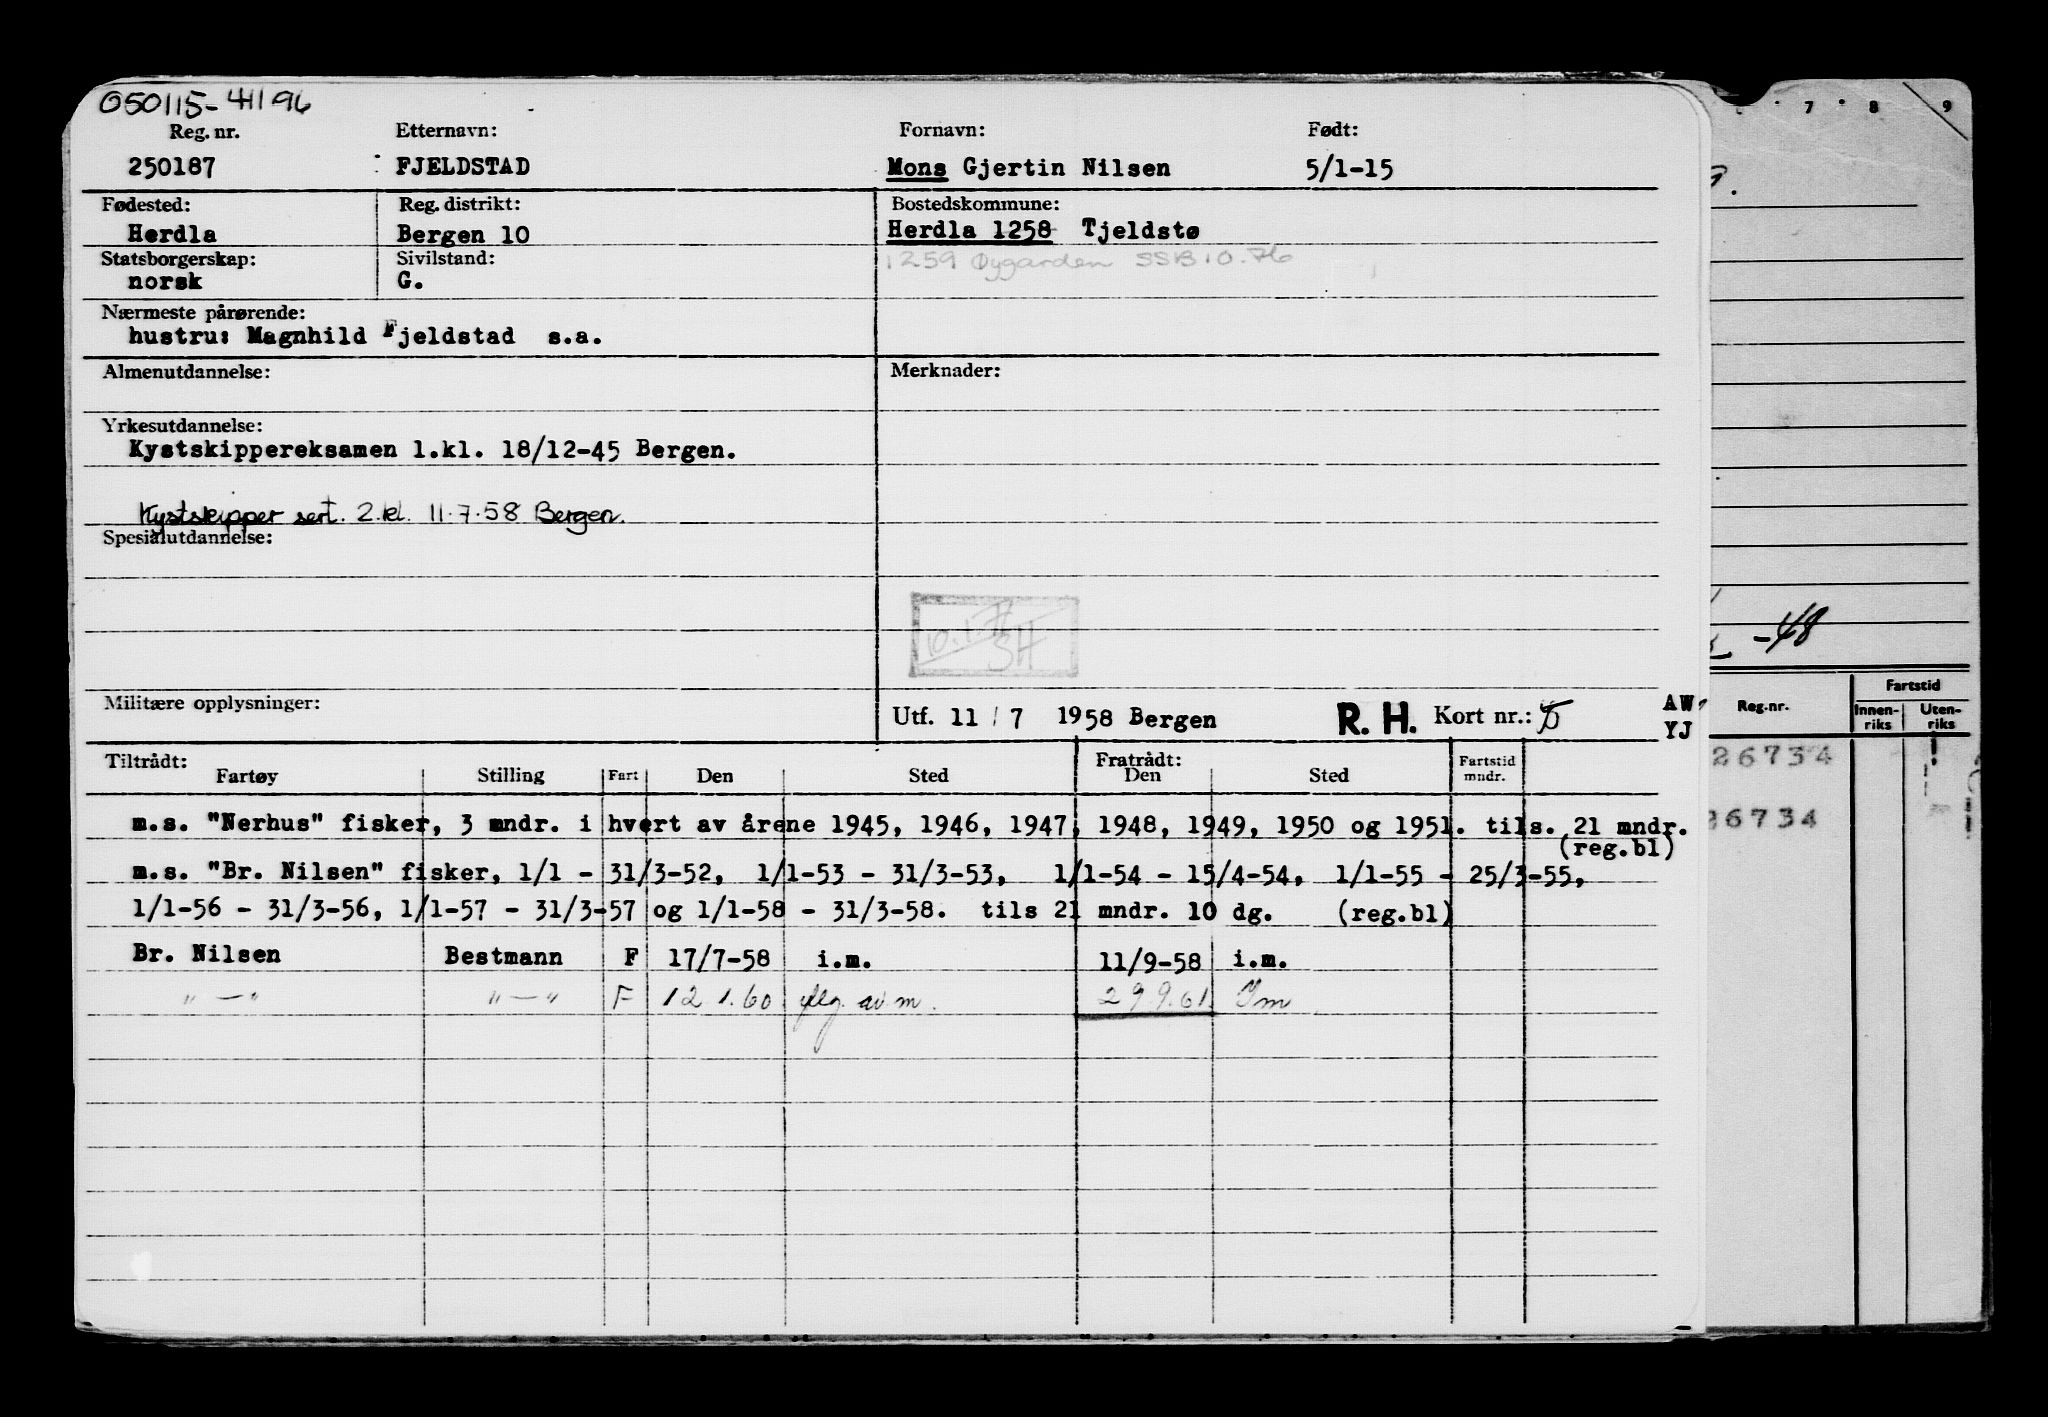 050115-41196
Reg. nr. Etternavn: Fornavn: Født:
250187 FJELDSTAD Mons Gjertin Nilsen 5/1-15
Fødested: Reg. distrikt: Bostedskommune:
Herdla Bergen 10 Herdla 1258 Tjeldstø
Statsborgerskap: Sivilstand: 1259 Øygarden SSB 10.76
norsk G.
Nærmeste pårørende:
hustru: Magnhild Fjeldstad s.a.
Almenutdannelse: Merknader:
Yrkesutdannelse:
Kystskippereksamen 1.kl. 18/12-45 Bergen.
Kystskipper sert. 2.kl. 11.7.58 Bergen.
Spesialutdannelse:
SH
Militære opplysninger:
Utf. 11/7 1958 Bergen R. H. Kort nr.: AW,
YJ
Tiltrådt: Fratrådt:
Fartøy Stilling Fart Den Sted Den Sted Fartstid mndr.
m.s. "Nerhus" fisker, 3 mndr. i hvert av årene 1945, 1946, 1947, 1948, 1949, 1950 og 1951. tils. 21 mndr.
(reg.bl)
m.s. "Br. Nilsen" fisker, 1/1 - 31/3-52, 1/1-53 - 31/3-53, 1/1-54 - 15/4-54, 1/1-55 - 25/3-55,
1/1-56 - 31/3-56, 1/1-57 - 31/3-57 og 1/1-58 - 31/3-58. tils 21 mndr. 10 dg. (reg.bl)
Br. Nilsen Bestmann F 17/7-58 i.m. 11/9-58 i.m.
" — " " — " F 12.1.60 av m. 29.9.61 Im
7 8 9
-48
Reg.nr. Fartstid
Innen-riks Uten-riks
26734
26734